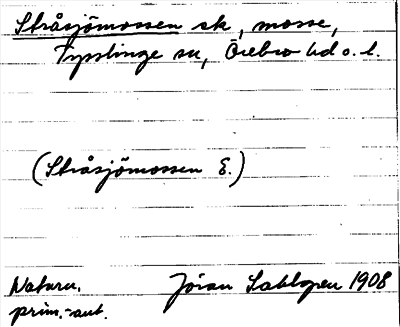 Stråsjömossen sk, mosse,
Tysslinge sn, Örebro hd o. l.
(Stråsjömossen E.)
Naturn. Jöran Sahlgren 1908
prim.-aut.